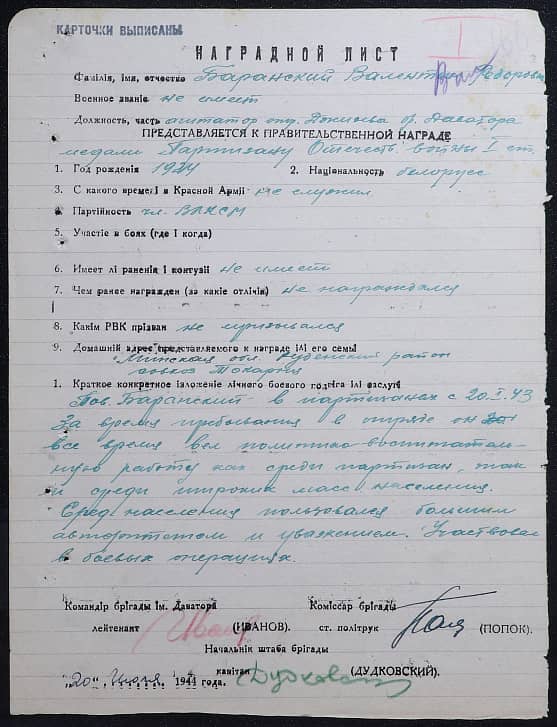 КАРТОЧКИ ВЫПИСАНЫ
I
НАГРАДНОЙ ЛИСТ
Фамілія, імя, отчество Баранский Валентин Федоров
Военное званіе не имеет
Должность, часть агитатор отр. Доватора
ПРЕДСТАВЛЯЕТСЯ К ПРАВИТЕЛЬСТВЕННОЙ НАГРАДЕ
медали Партизану Отечеств. войны I ст.
1. Год рожденія 1924 2. Національность белорусс
3. С какого временi в Красной Арміі не служил
4. Партійность чл. ВЛКСМ
5. Участіе в боях (где і когда)
6. Имеет лі раненія і контузіі не имеет
7. Чем ранее награжден (за какіе отлічія) не награждался
8. Какім РВК прізван не призывался
9. Домашній адрес представляемого к награде ілі его семьі
Минская обл. Руденский район
совхоз Токарня
1. Краткое конкретное ізложеніе лічного боевого подвіга ілі заслугі
Тов. Баранский в партизанах с 20.I.43
За время пребывания в отряде он
все время вел политико-воспитатель-
ную работу как среди партизан, так
и среди широких масс населения.
Сред населения пользовался большим
авторитетом и уважением. Участвовал
в боевых операциях.
Командір брігады ім. Даватора Коміссар брігады
лейтенант (ІВАНОВ). ст. політрук (ПОПОК).
Начальнік штаба брігады
капітан (ДУДКОВСКИЙ).
"20" Июня 1944 года. Дудковский